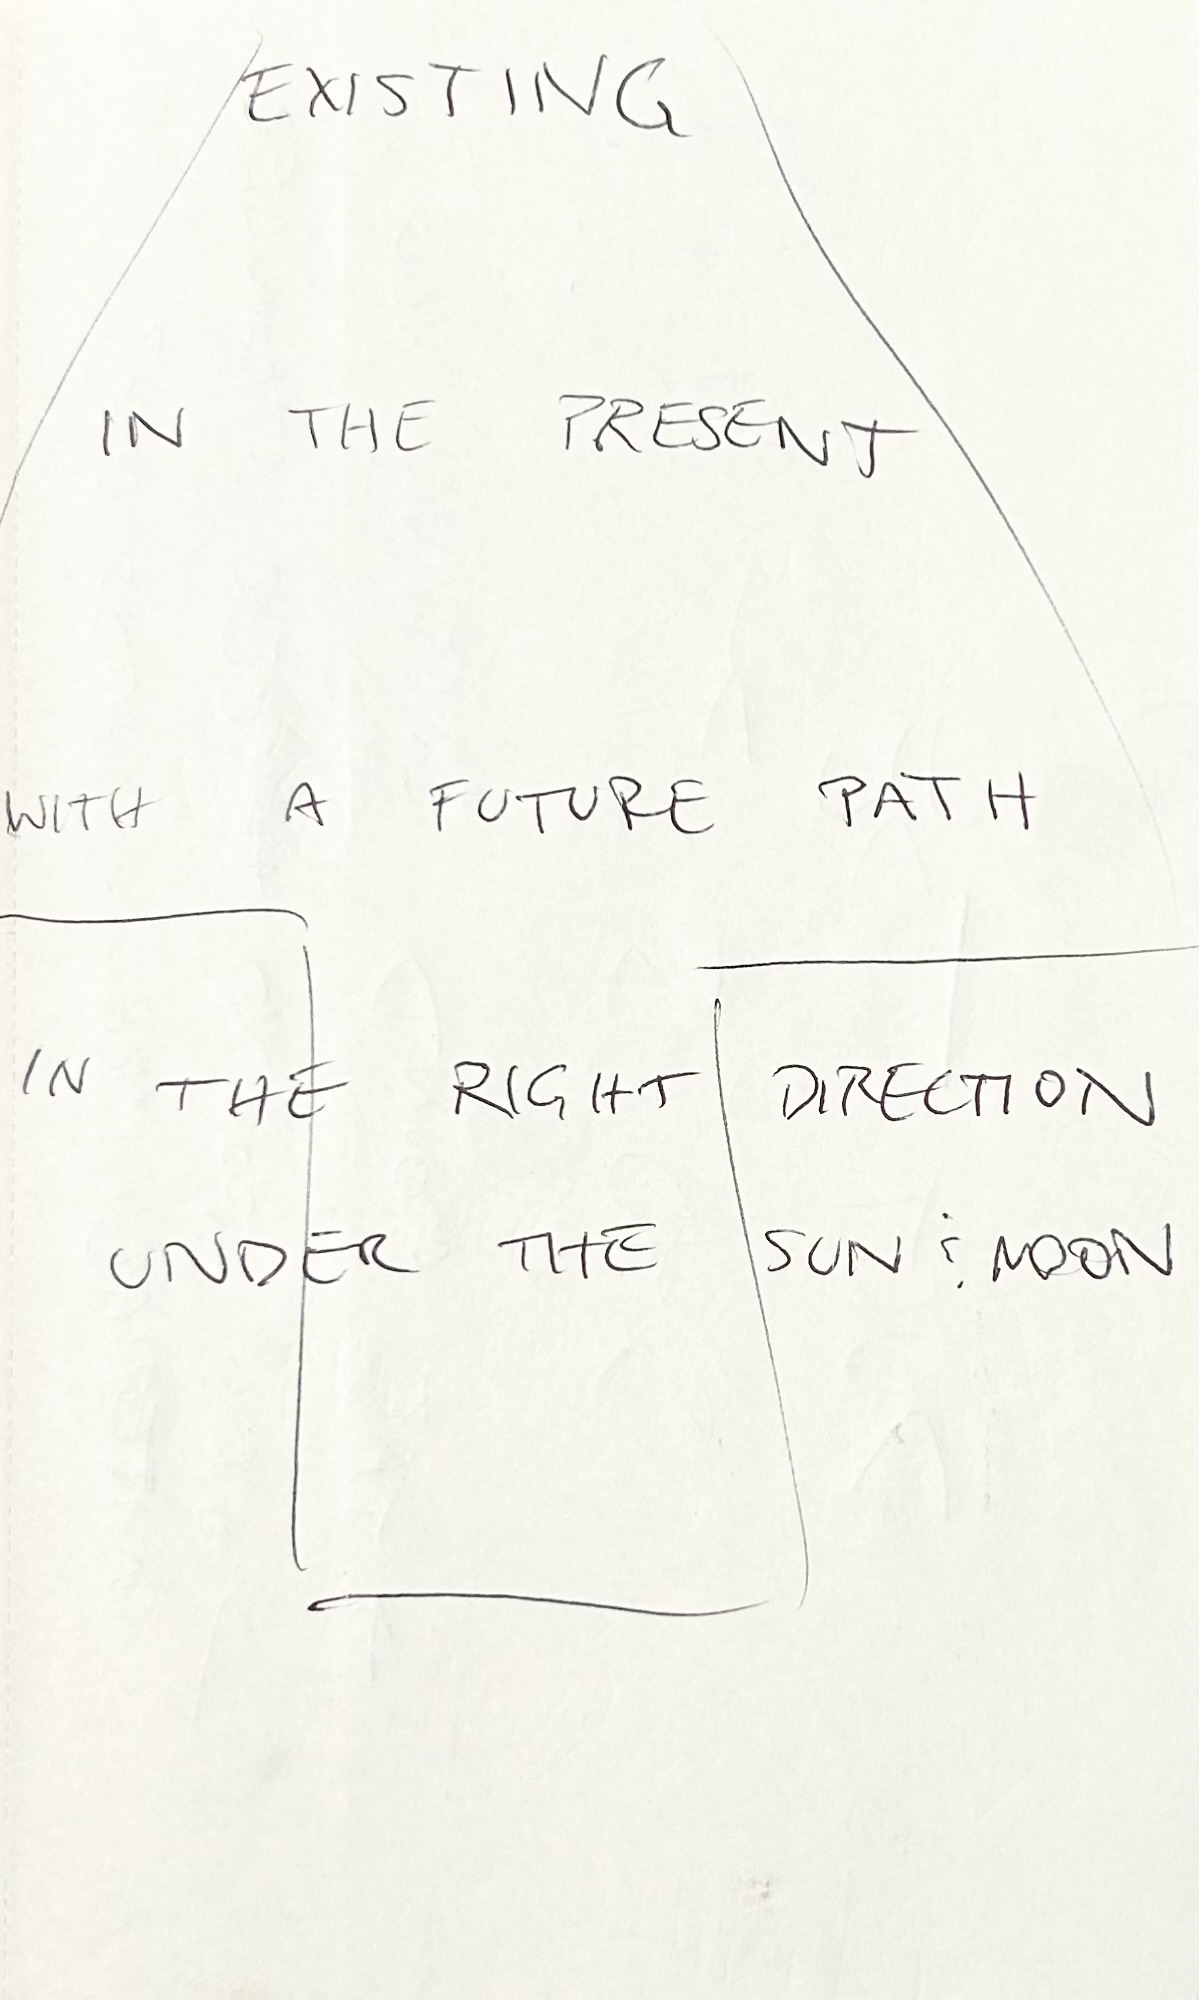 EXISTING
IN THE PRESENT
WITH A FUTURE PATH
IN THE RIGHT DIRECTION
UNDER THE SUN & MOON